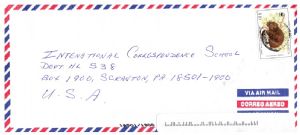 INTERNATIONAL CORRESPONDENCE SCHOOL
DEPT HL S38
BOX 1900, SCRANTON, PA 18501-1900
U.S.A
VIA AIR MAIL
CORREO AEREO